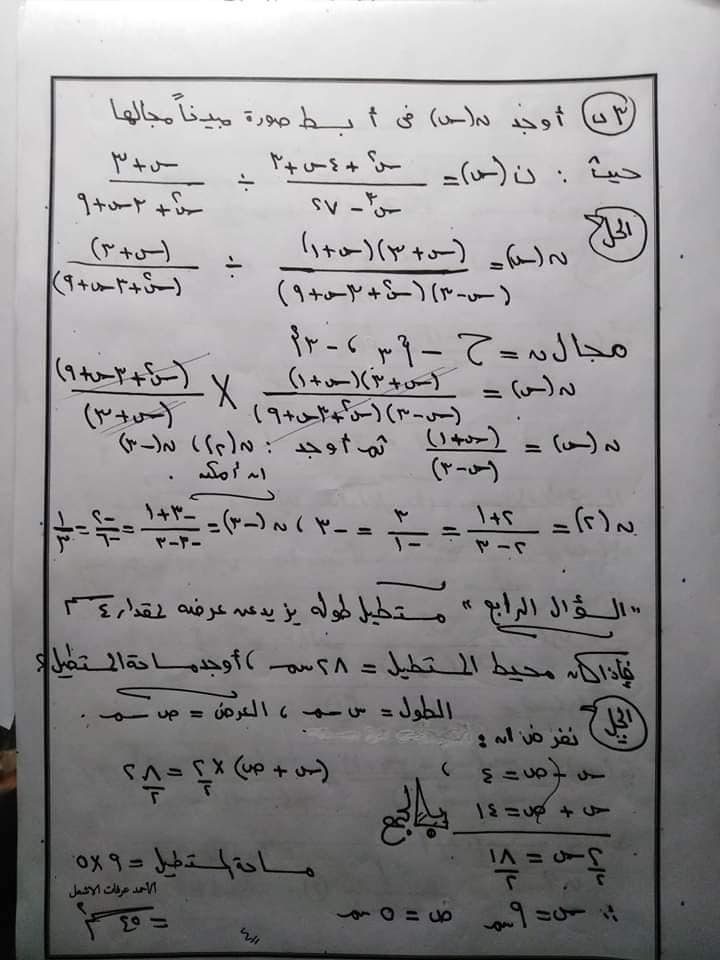 س٣ أوجد ن(س) فى أبسط صورة مبيناً مجالها
حيث : ن(س) = (س٢ + ٤س + ٣)/(س٣ - ٢٧) ÷ (س + ٣)/(س٢ + ٣س + ٩)
الحل
ن(س) = (س + ٣)(س + ١)/(س - ٣)(س٢ + ٣س + ٩) ÷ (س + ٣)/(س٢ + ٣س + ٩)
مجال ن = ح - {٣ ، -٣}
ن(س) = (س + ٣)(س + ١)/(س - ٣)(س٢ + ٣س + ٩) × (س٢ + ٣س + ٩)/(س + ٣)
ن(س) = (س + ١)/(س - ٣) ثم أوجد : ن(٢) ، ن(-٣)
إن أمكن .
ن(٢) = (٢ + ١)/(٢ - ٣) = ٣/-١ = -٣ ، ن(-٣) = (-٣ + ١)/(-٣ - ٣) = -٢/-٦ = ١/٣
"السؤال الرابع" مستطيل طوله يزيد عن عرضه بمقدار ٤ سم
فإذا كان محيط المستطيل = ٢٨ سم ، أوجد مساحة المستطيل ؟
الحل
نفرض أن : الطول = س سم ، العرض = ص سم .
س - ص = ٤ ، (س + ص) × ٢/٢ = ٢٨/٢
س + ص = ١٤ بالجمع
٢س/٢ = ١٨/٢ مساحة المستطيل = ٩ × ٥
الأحمد عرفات الاشعل
∴ س = ٩ سم ص = ٥ سم = ٤٥ سم٢